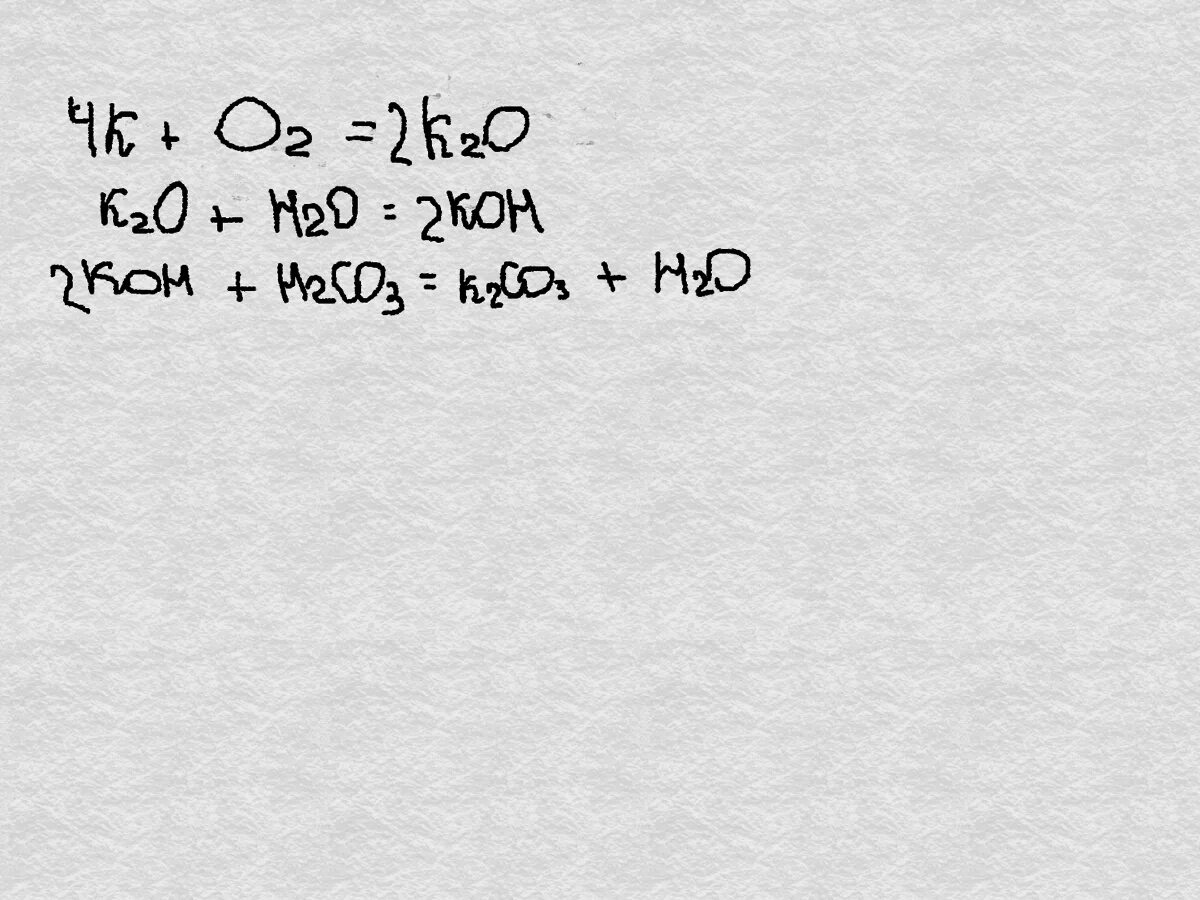 4K + O₂ = 2K₂O
K₂O + H₂O = 2KOH
2KOH + H₂CO₃ = K₂CO₃ + H₂O